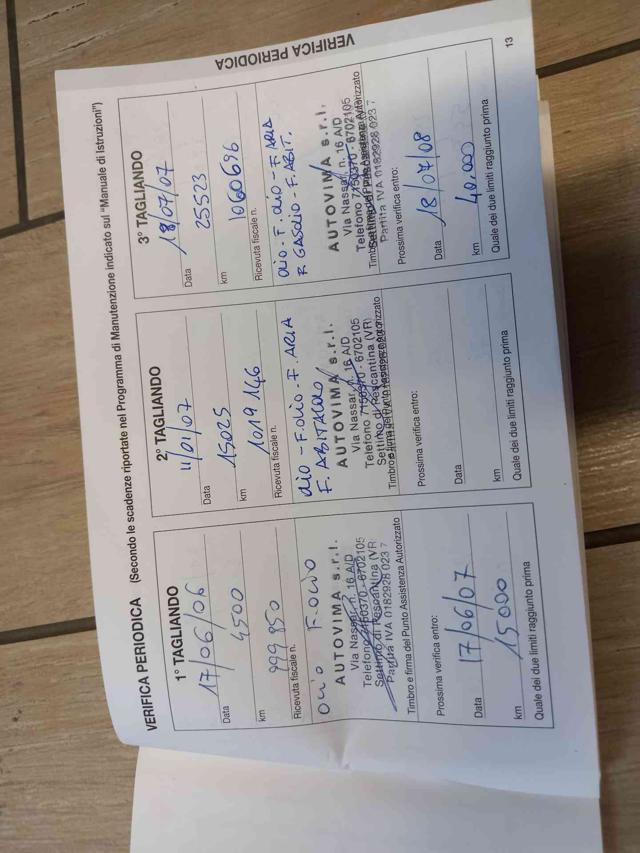 VERIFICA PERIODICA (Secondo le scadenze riportate nel Programma di Manutenzione indicato sul "Manuale di Istruzioni")
1° TAGLIANDO
17/06/06
Data
4500
km
999 850
Ricevuta fiscale n.
OLIO F. OLIO
AUTOVIMA s.r.l.
Via Nassar, n. 16 A/D
Telefono 7150370 - 6702105
Settimo di Pescantina (VR)
Partita IVA 0182928 023 7
Timbro e firma del Punto Assistenza Autorizzato
Prossima verifica entro:
17/06/07
Data
15000
km
Quale dei due limiti raggiunto prima
2° TAGLIANDO
11/01/07
Data
15025
km
1019 146
Ricevuta fiscale n.
OLIO - F. OLIO - F. ARIA
F. ABITACOLO
AUTOVIMA s.r.l.
Via Nassar, n. 16 A/D
Telefono 7150370 - 6702105
Settimo di Pescantina (VR)
Prossima verifica entro:
Data
km
Quale dei due limiti raggiunto prima
3° TAGLIANDO
18/07/07
Data
25523
km
1060696
Ricevuta fiscale n.
OLIO - F. OLIO - F. ARIA
F. GASOLIO - F. ABIT.
AUTOVIMA s.r.l.
Via Nassar, n. 16 A/D
Telefono 7150370 - 6702105
Partita IVA 0182928 023 7
Prossima verifica entro:
18/07/08
Data
40.000
km
Quale dei due limiti raggiunto prima
VERIFICA PERIODICA
13